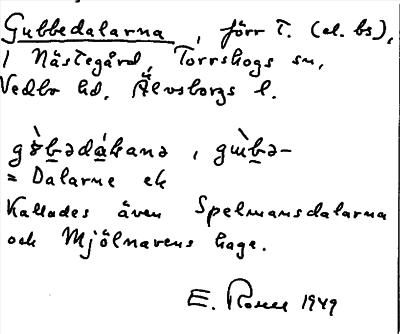 Gubbedalarna, förr T. (el. bs),
i Nästegård, Torrskogs sn,
Vedbo hd, Älvsborgs l.
= Dalarne ek
Kallades även Spelmansdalarna
och Mjölnarens hage.
E. 1949